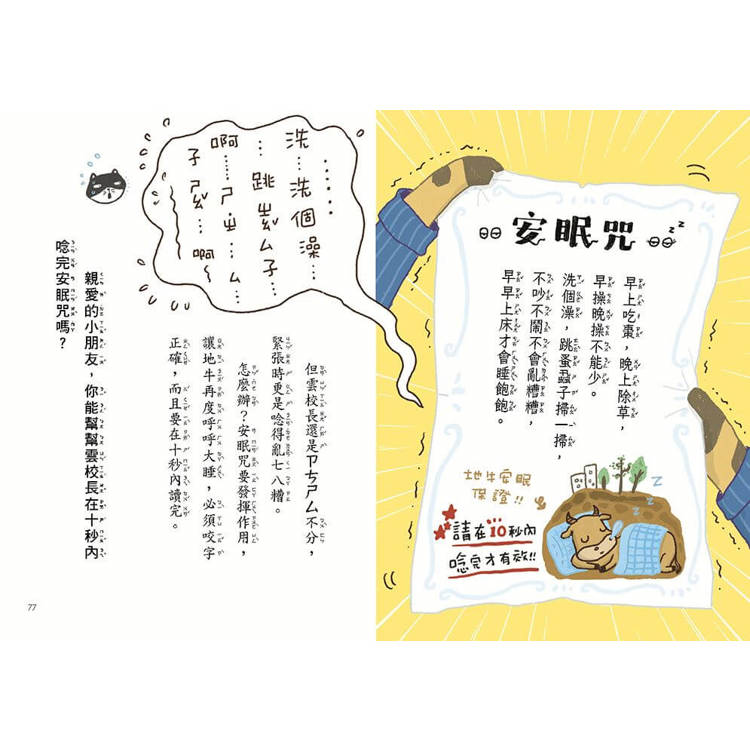 安眠咒
zz
早上吃棗，晚上除草，
早操晚操不能少。
洗個澡，跳蚤蝨子掃一掃，
不吵不鬧不會亂糟糟，
早早上床才會睡飽飽。
地牛安眠
保證!!
請在10秒內
唸完才有效!!
zzz
……
洗…洗個澡…
…跳ㄘㄠˇㄙ子…
啊……ㄕ…ㄓ…ㄙ…
啊～
但雲校長還是ㄗㄘㄕㄙ不分，
緊張時更是唸得亂七八糟。
怎麼辦？安眠咒要發揮作用，
讓地牛再度呼呼大睡，必須咬字
正確，而且要在十秒內讀完。
親愛的小朋友，你能幫幫雲校長在十秒內
唸完安眠咒嗎？
77